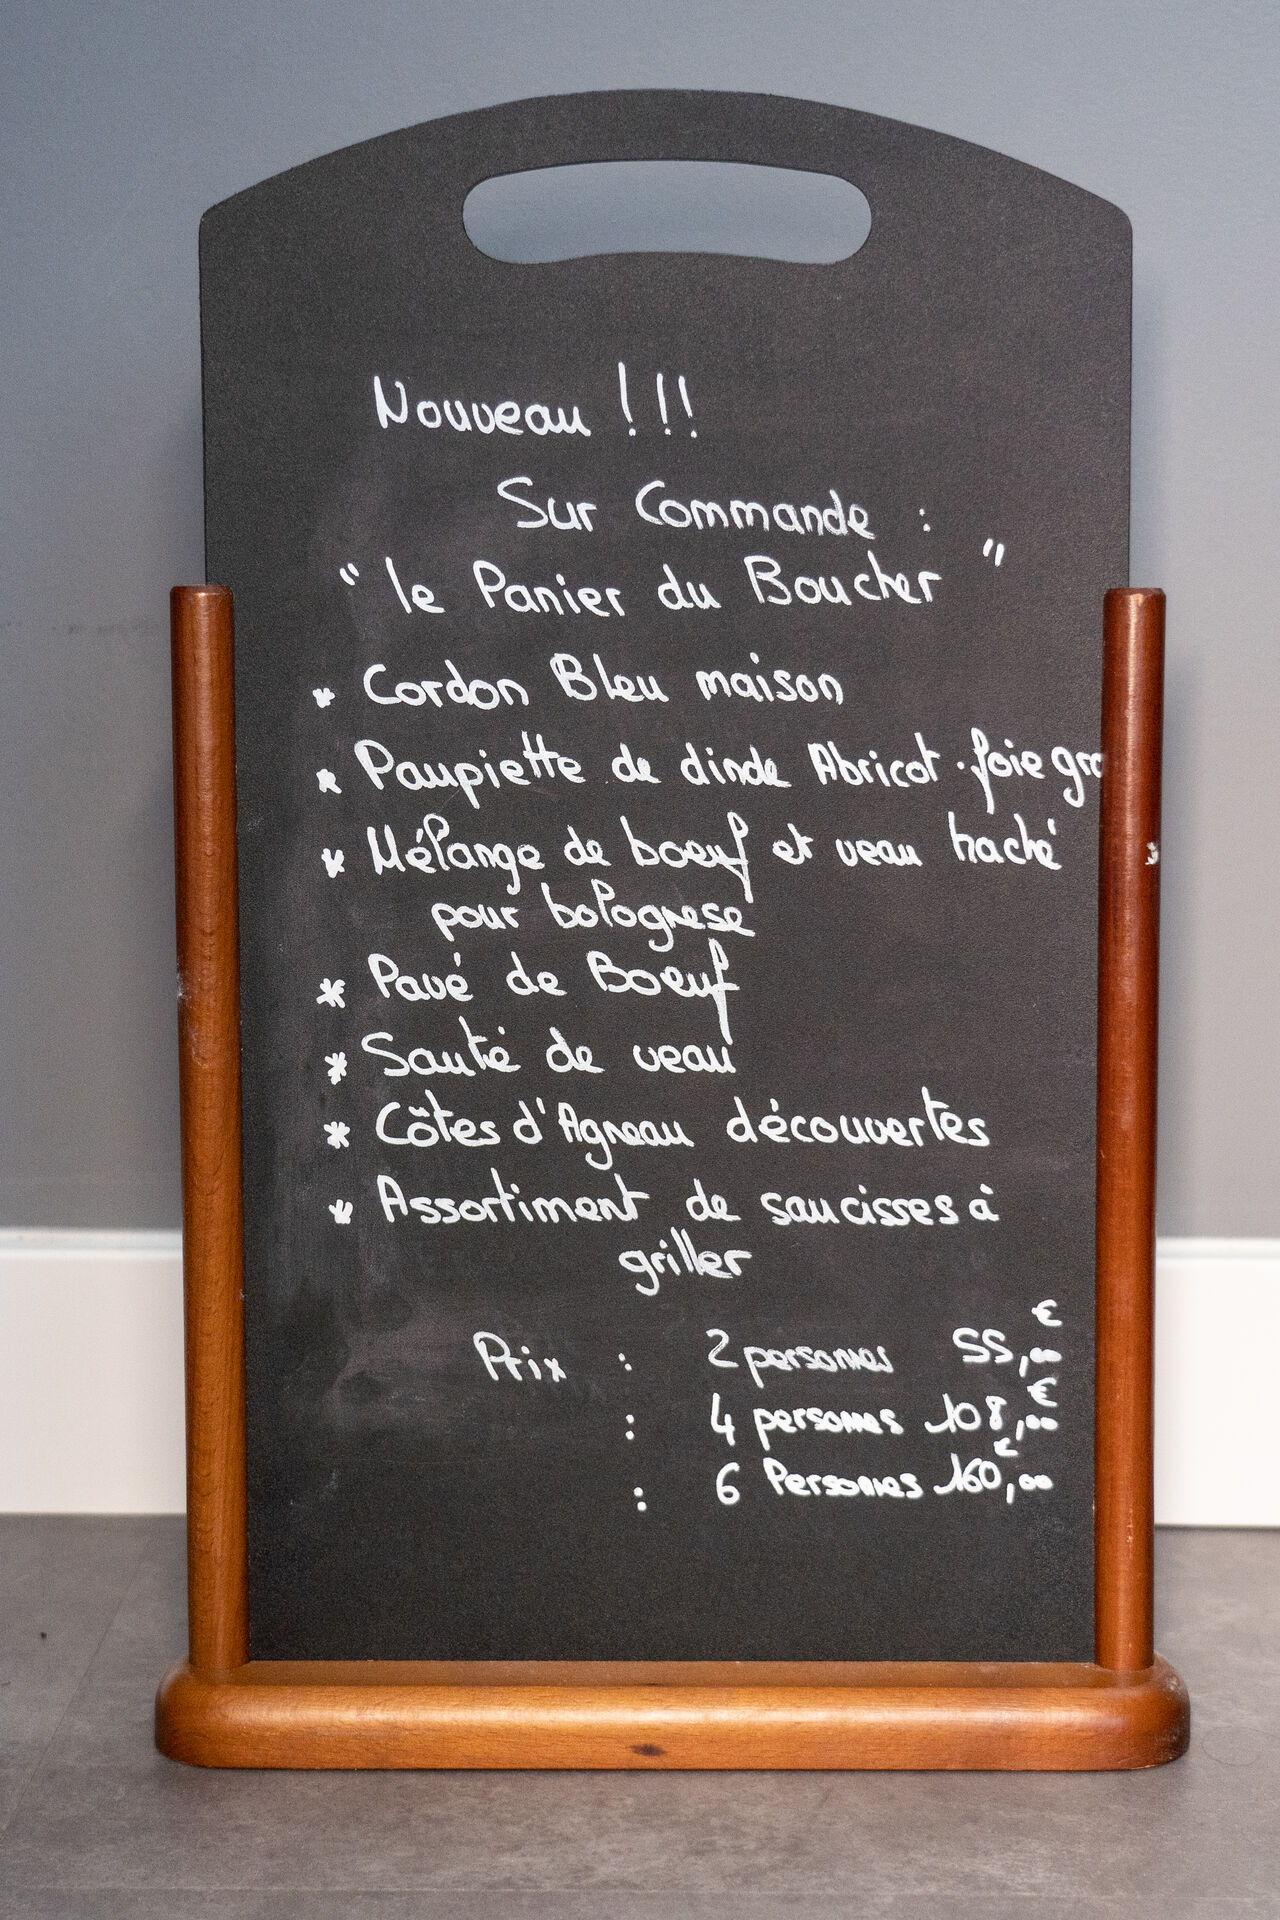 Nouveau !!!
Sur Commande :
" le Panier du Boucher "
* Cordon Bleu maison
* Paupiette de dinde Abricot - foie gra
* Mélange de boeuf et veau haché
pour bolognese
* Pavé de Boeuf
* Sauté de veau
* Côtes d'Agneau découvertes
* Assortiment de saucisses à
griller
Prix : 2 personnes 55,00 €
: 4 personnes 108,00 €
: 6 Personnes 160,00 €